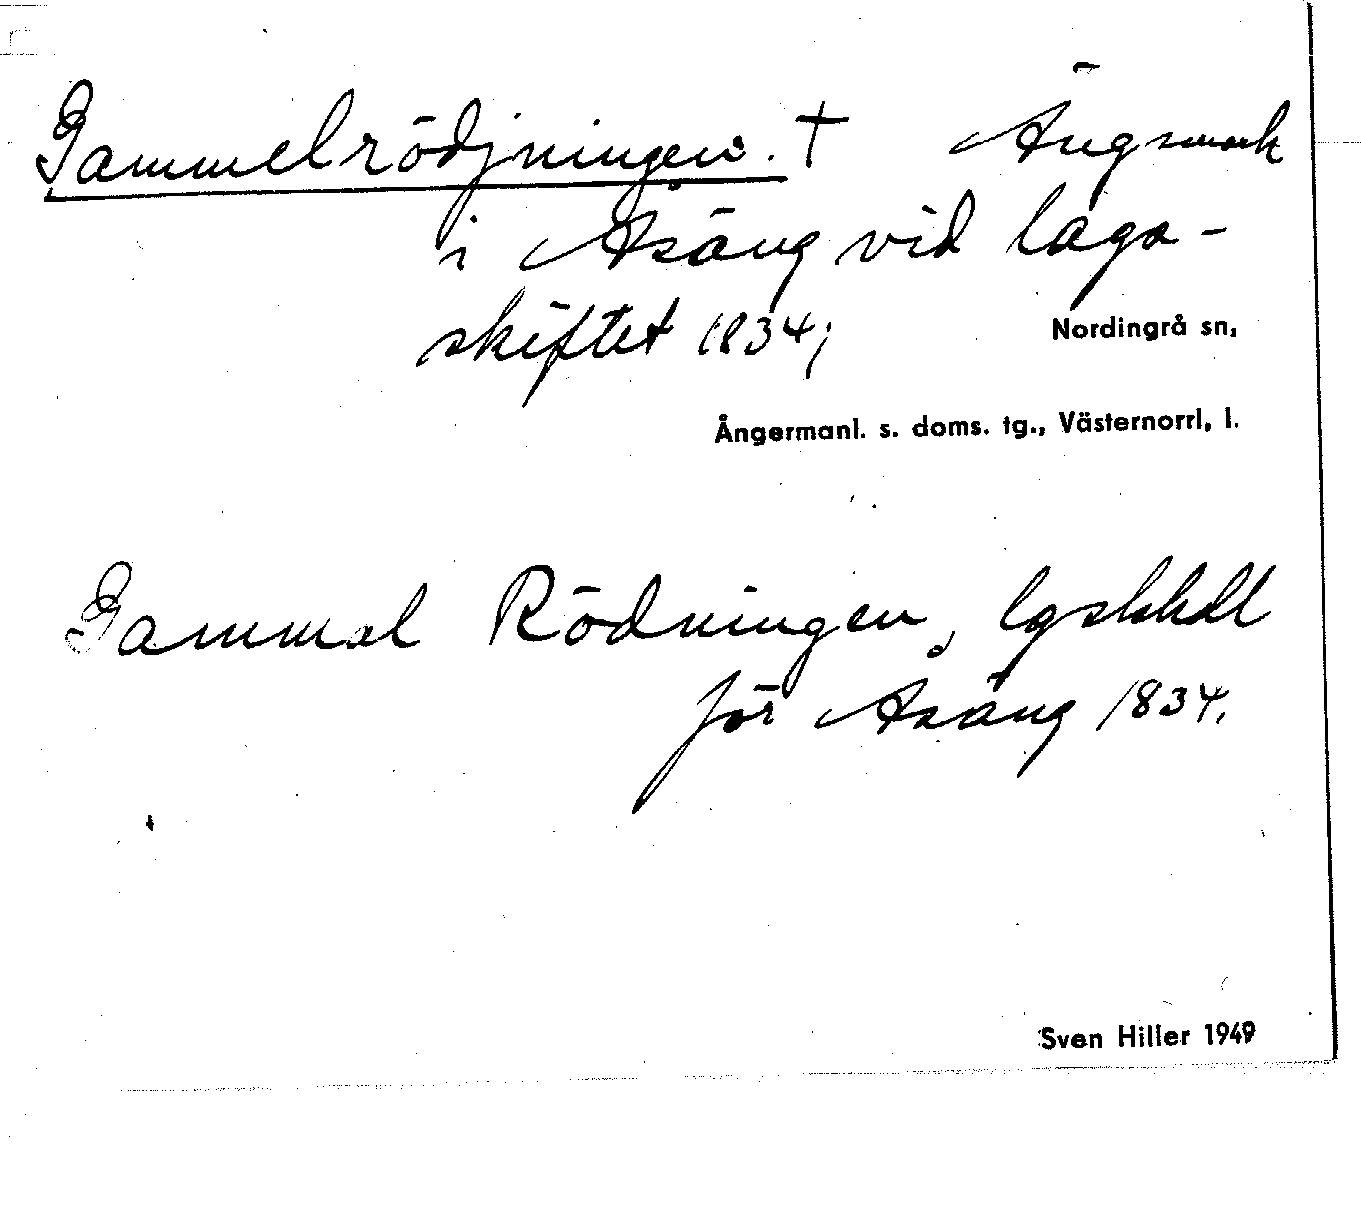 Gammelrödjningen. † Ängsmark
i Åsäng vid laga-
skiftet 1834;
Nordingrå sn.
Ångermanl. s. doms. tg., Västernorrl. l.
Gammal Rödningen, lgskhdl
för Åsäng 1834.
Sven Hiller 1949